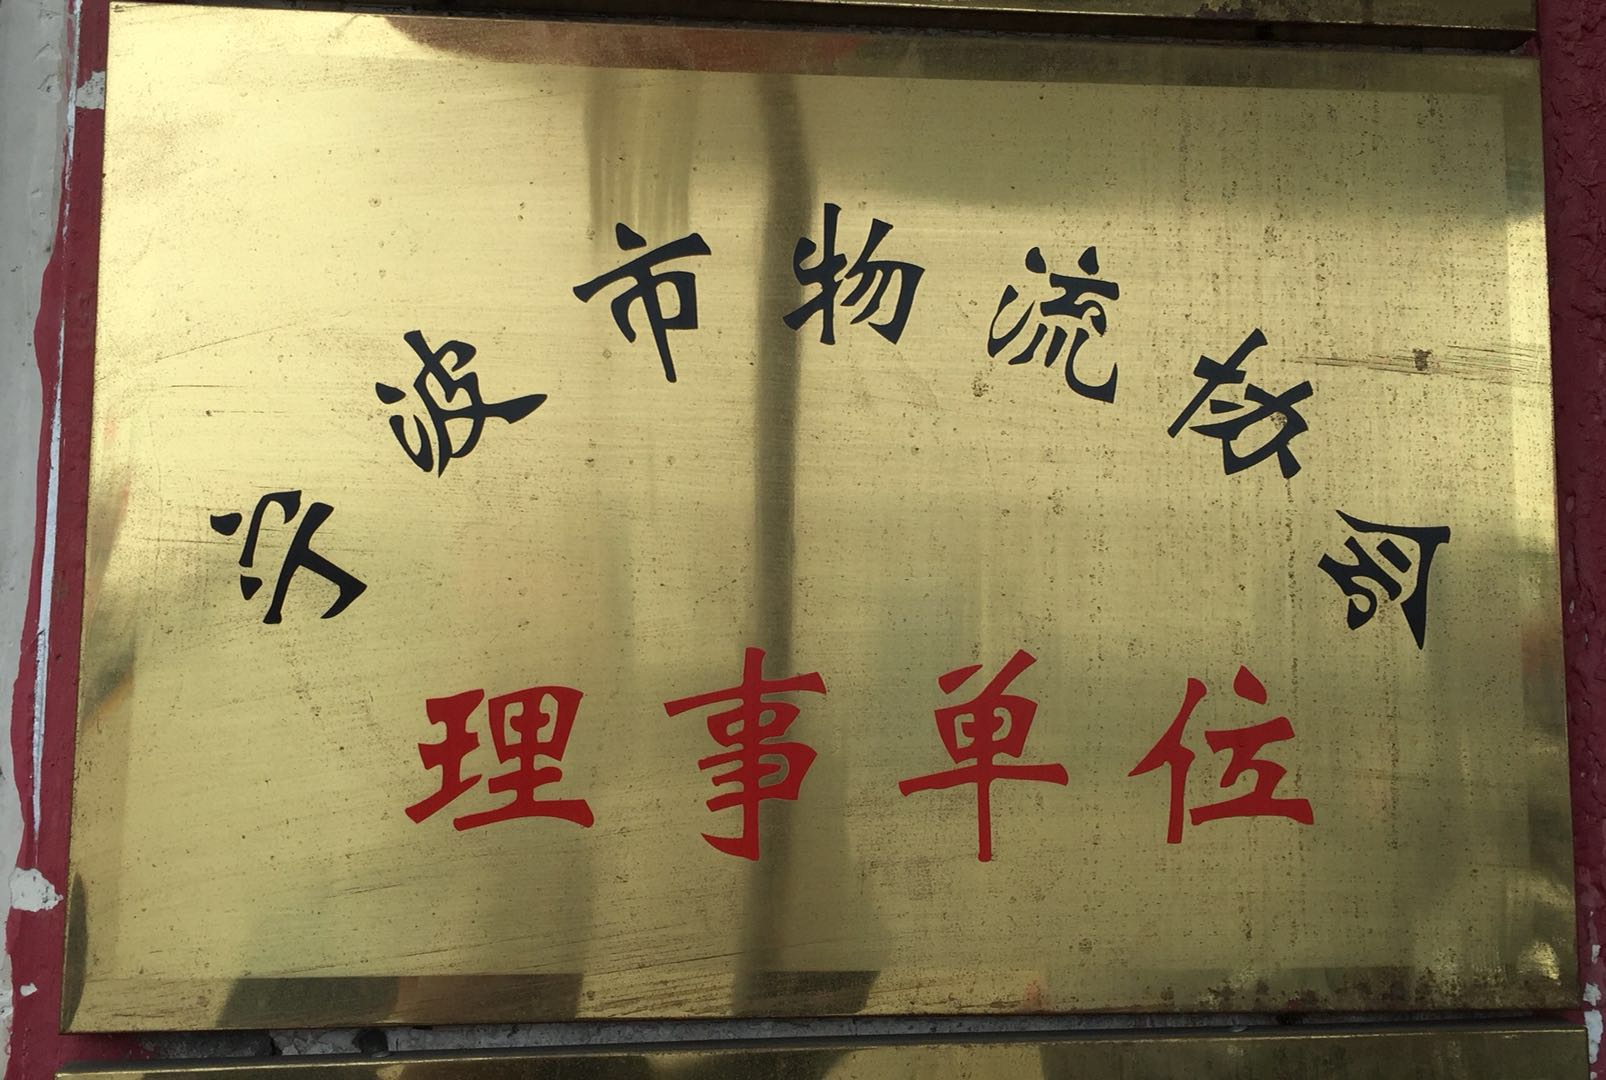 宁波市物流协会
理事单位